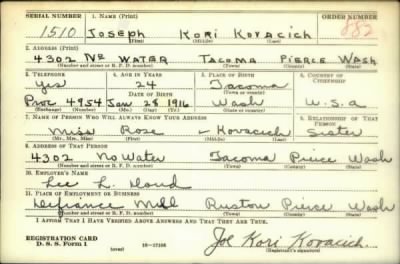 SERIAL NUMBER 1. NAME (Print) ORDER NUMBER
1510 JOSEPH KORI KOVACICH 882
(First) (Middle) (Last)
2. ADDRESS (Print)
4302 No WATER TACOMA PIERCE WASH
(Number and street or R. F. D. number) (Town) (County) (State)
3. TELEPHONE 4. AGE IN YEARS 5. PLACE OF BIRTH 6. COUNTRY OF CITIZENSHIP
Yes 24 Tacoma
DATE OF BIRTH (Town or county)
Proc 4954 Jan 28 1916 Wash U.S.A
(Exchange) (Number) (Mo.) (Day) (Yr.) (State or country)
7. NAME OF PERSON WHO WILL ALWAYS KNOW YOUR ADDRESS 8. RELATIONSHIP OF THAT PERSON
Miss Rose - Kovacich Sister
(Mr., Mrs., Miss) (First) (Middle) (Last)
9. ADDRESS OF THAT PERSON
4302 No Water Tacoma Pierce Wash
(Number and street or R. F. D. number) (Town) (County) (State)
10. EMPLOYER'S NAME
Lee L. Doud
11. PLACE OF EMPLOYMENT OR BUSINESS
Defiance Mill Ruston Pierce Wash
(Number and street or R. F. D. number) (Town) (County) (State)
I AFFIRM THAT I HAVE VERIFIED ABOVE ANSWERS AND THAT THEY ARE TRUE.
REGISTRATION CARD
D. S. S. Form 1 (over) 16—17105 Joe Kori Kovacich
(Registrant's signature)